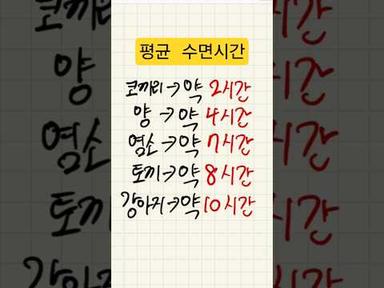 평균 수면시간
코끼리→약 2시간
양→약 4시간
염소→약 7시간
토끼→약 8시간
강아지→약 10시간